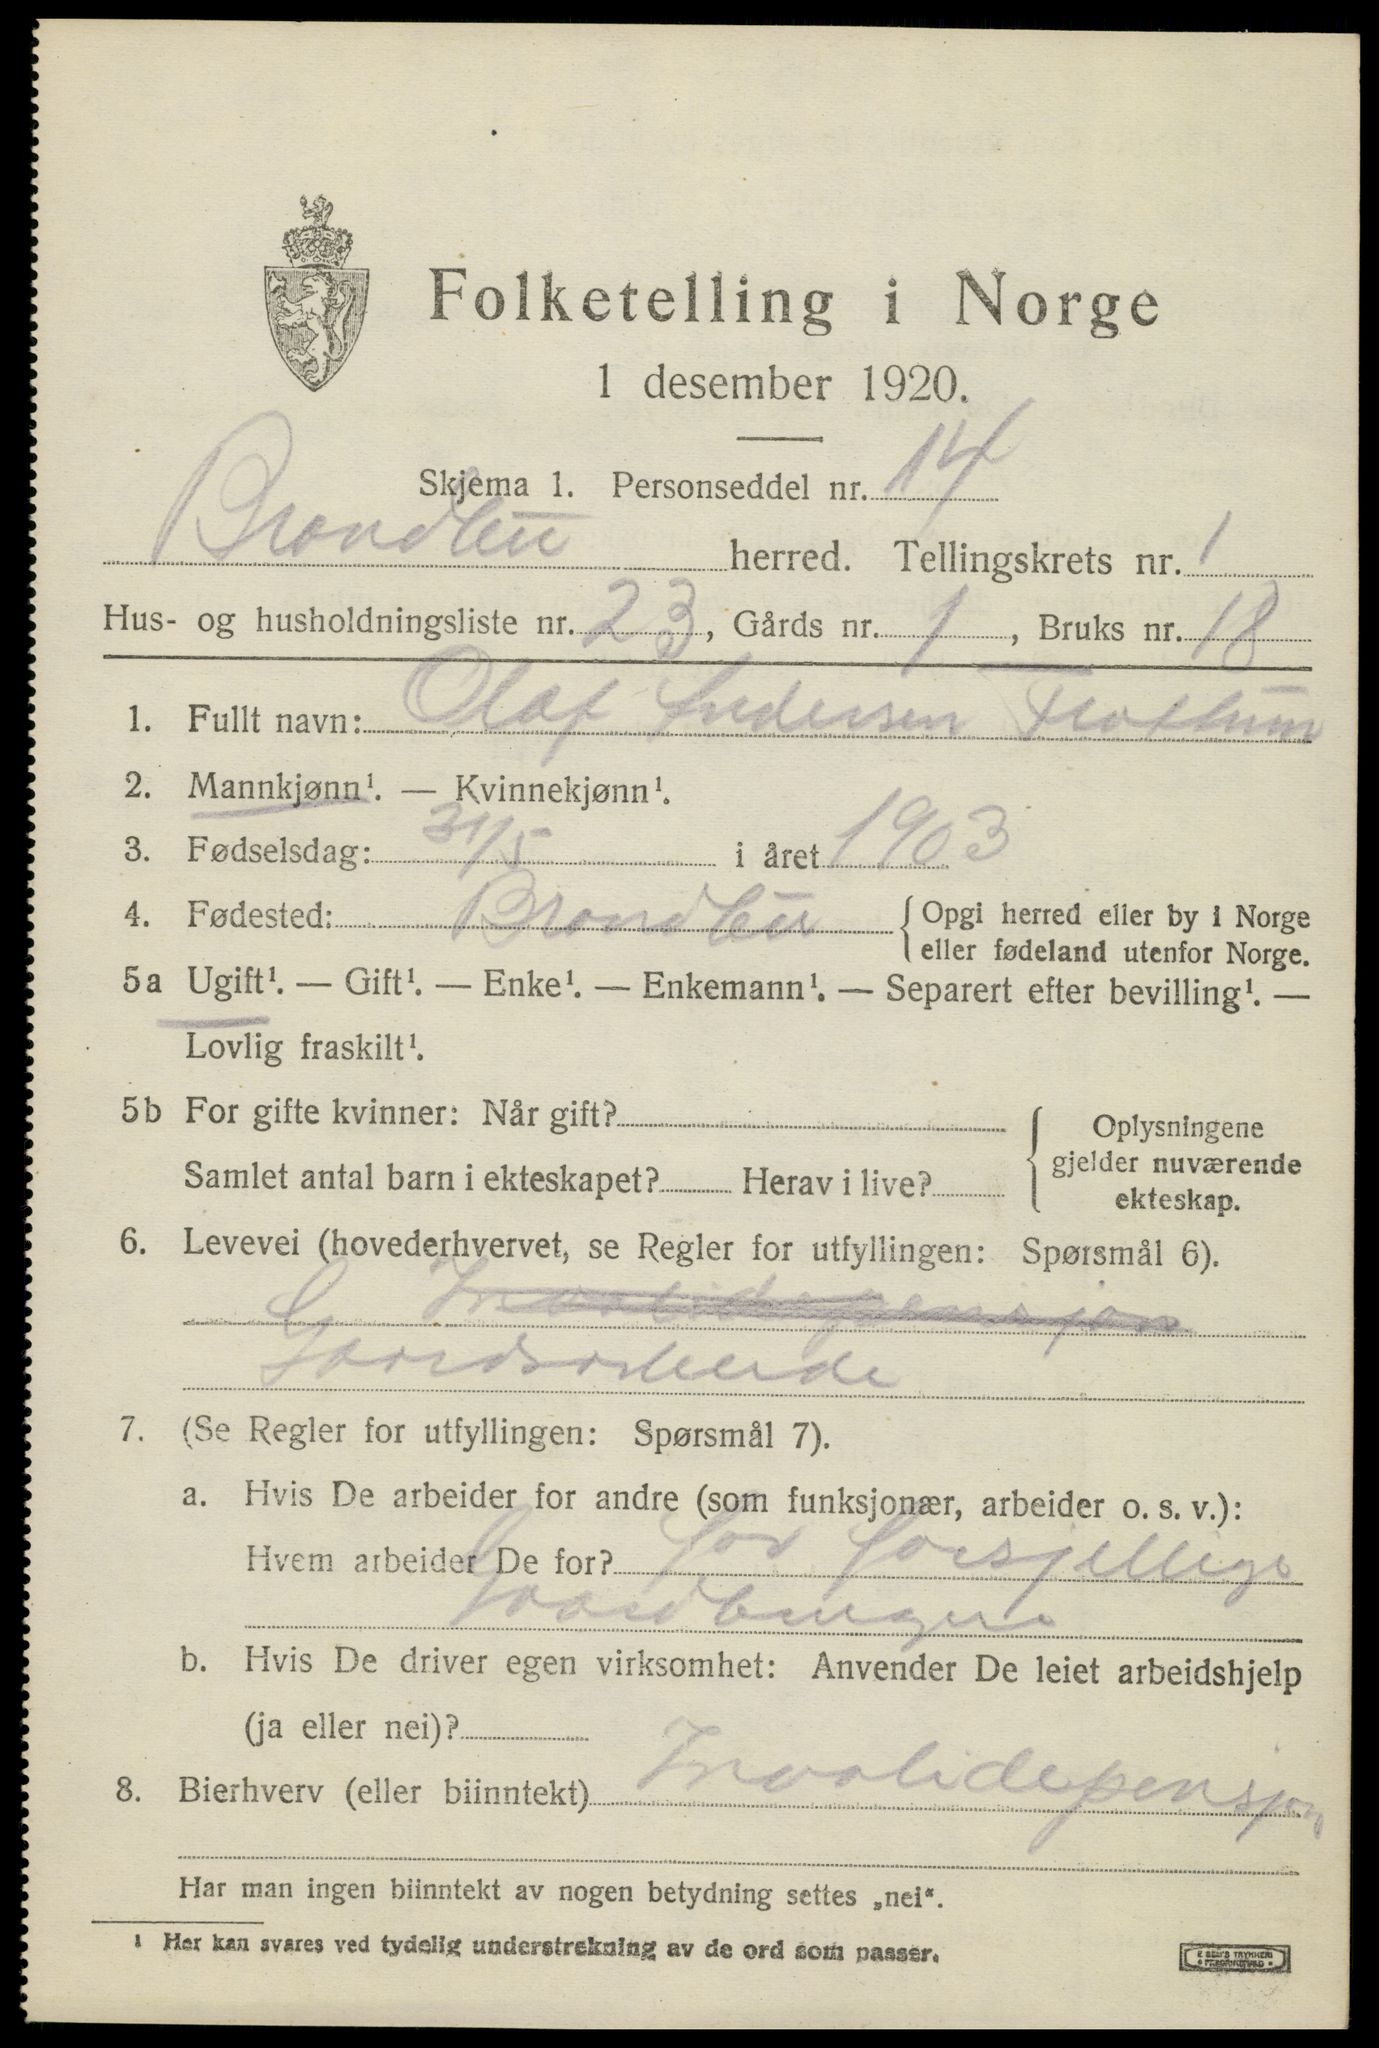 Folketelling i Norge
1 desember 1920.
Skjema 1. Personseddel nr. 14
Brandbu herred. Tellingskrets nr. 1
Hus- og husholdningsliste nr. 23, Gårds nr. 1, Bruks nr. 18
1. Fullt navn: Olaf Andersen
2. Mannkjønn¹. — Kvinnekjønn¹.
3. Fødselsdag: 31/5 i året 1903
4. Fødested: Brandbu { Opgi herred eller by i Norge
eller fødeland utenfor Norge.
5a Ugift¹. — Gift¹. — Enke¹. — Enkemann¹. — Separert efter bevilling¹. —
Lovlig fraskilt¹.
5b For gifte kvinner: Når gift?
Samlet antal barn i ekteskapet? Herav i live?
{ Oplysningene
gjelder nuværende
ekteskap.
6. Levevei (hovederhvervet, se Regler for utfyllingen: Spørsmål 6).
Invalidepensjon
Gaardsarbeide
7. (Se Regler for utfyllingen: Spørsmål 7).
a. Hvis De arbeider for andre (som funksjonær, arbeider o. s. v.):
Hvem arbeider De for? for forsjellige
Gaardbrugere
b. Hvis De driver egen virksomhet: Anvender De leiet arbeidshjelp
(ja eller nei)?
8. Bierhverv (eller biinntekt) Invalidepensjon
Har man ingen biinntekt av nogen betydning settes „nei".
¹ Her kan svares ved tydelig understrekning av de ord som passer.